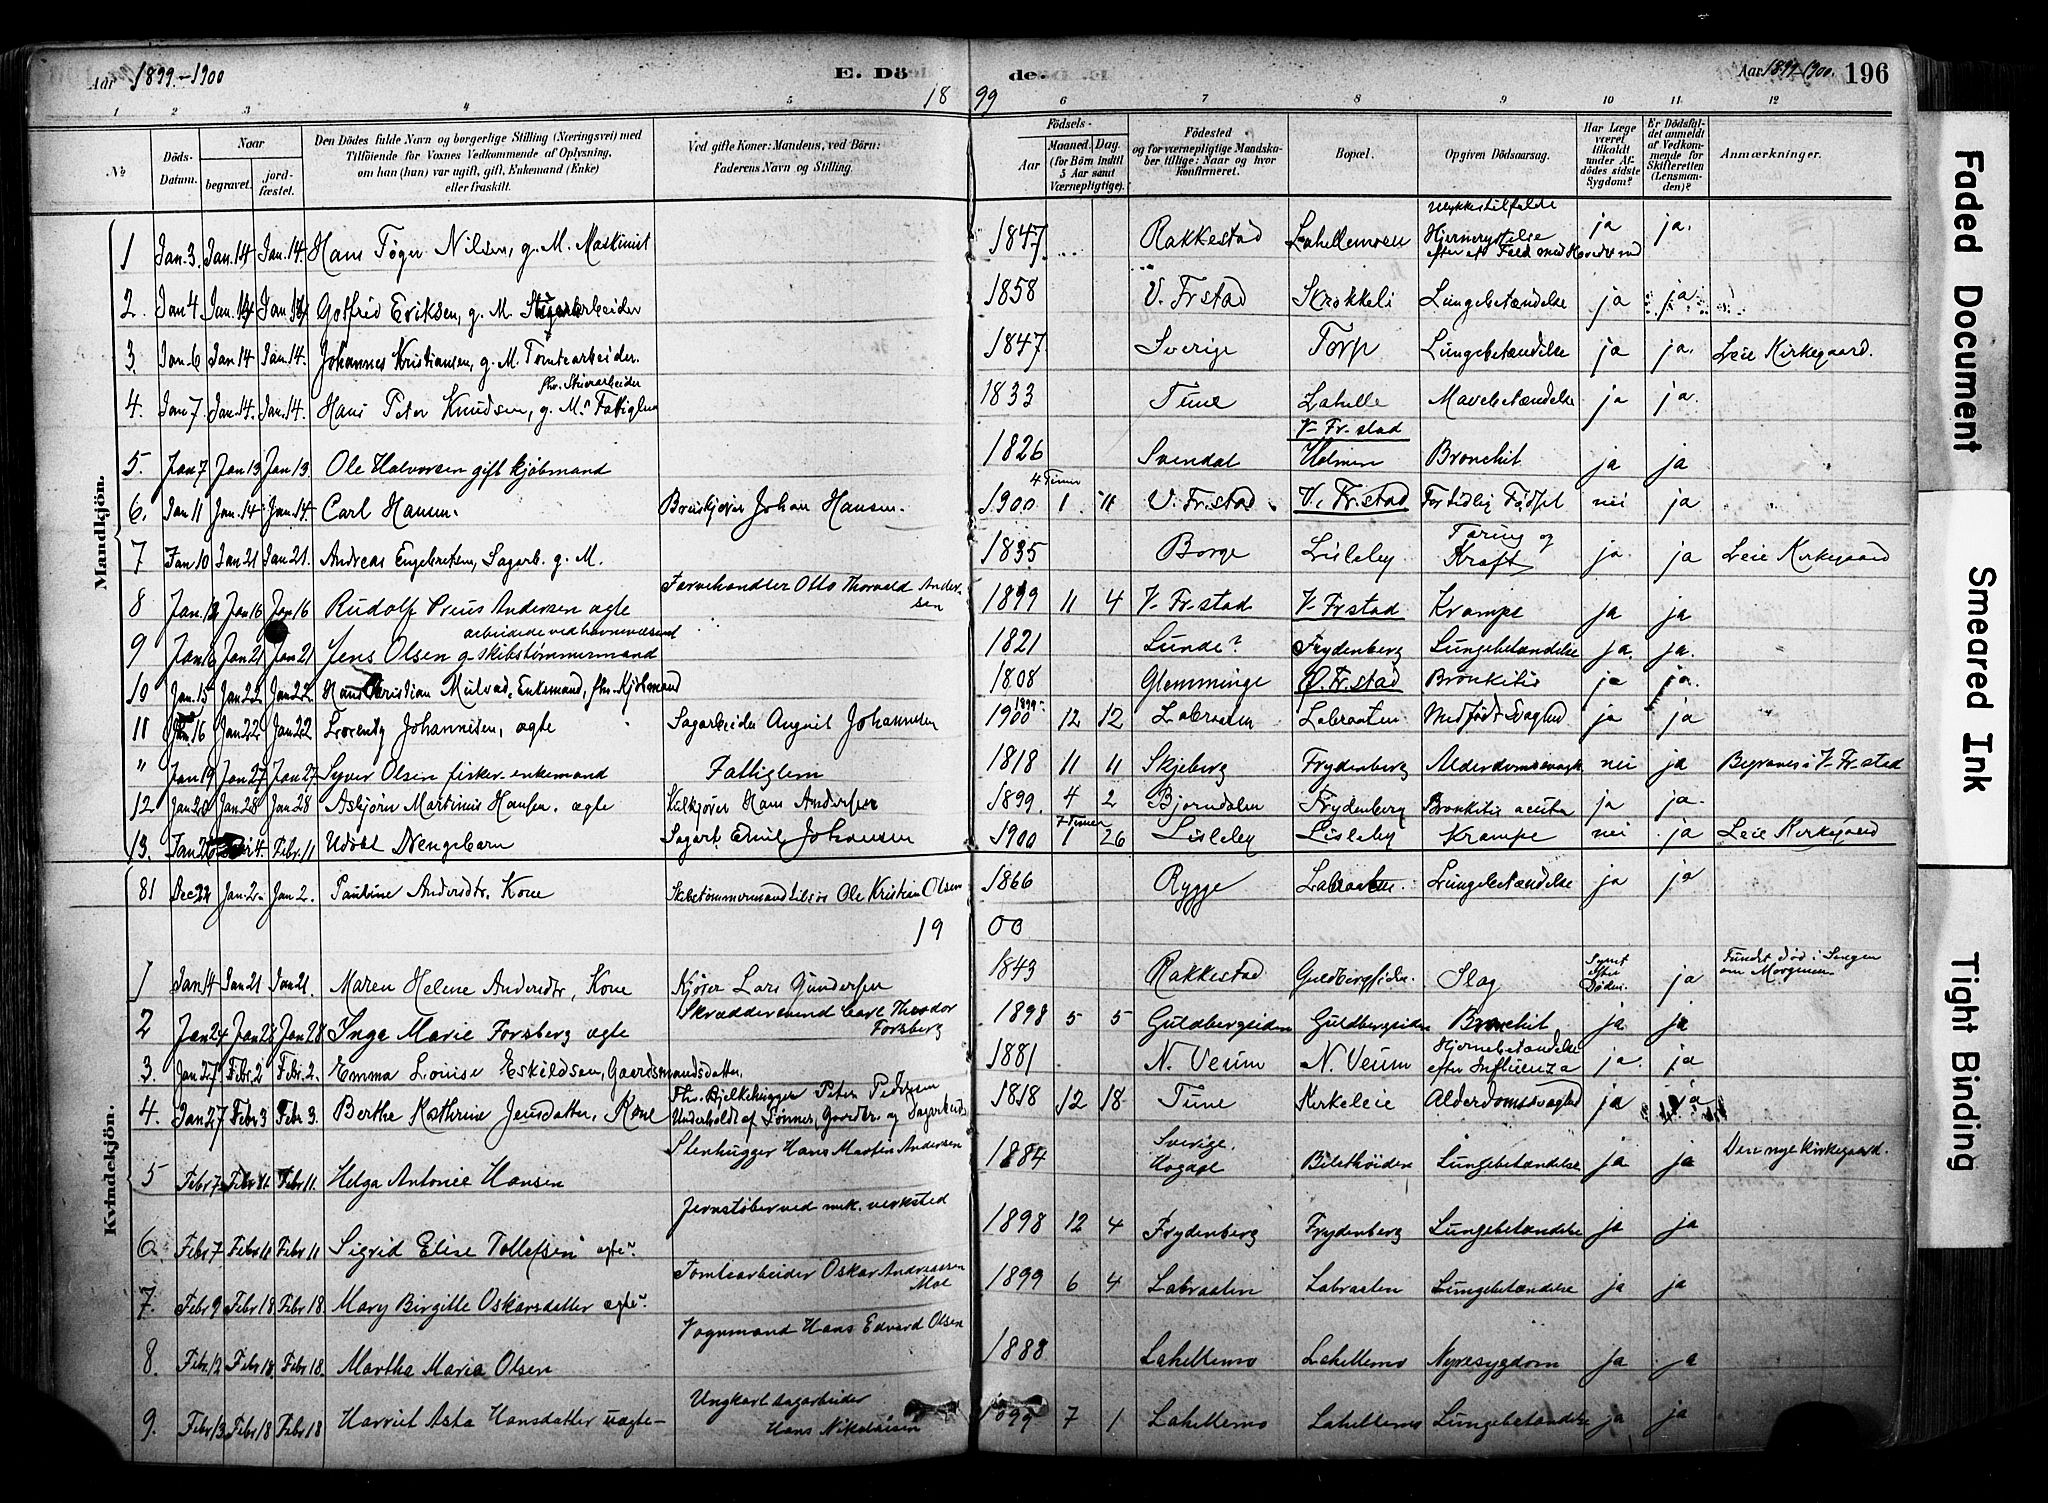 Aar 1899-1900 E. Döde. Aar 1899-1900. 196
1899
1 2 3 4 5 6 7 8 9 10 11 12
№ Döds-Datum. Naar begravet. jordfæstet. Den Dödes fulde Navn og borgerlige Stilling (Næringsvei) med Tilföiende for Voxnes Vedkommende af Oplysning, om han (hun) var ugift, gift, Enkemand (Enke) eller fraskilt. Ved gifte Koner: Mandens, ved Börn: Faderens Navn og Stilling. Födsels- Aar Maaned. Dag. (for Börn indtil 5 Aar samt Værnepligtige). Födested og for værnepligtige Mandskaber tillige: Naar og hvor konfirmeret. Bopæl. Opgiven Dödsaarsag. Har Læge været tilkaldt under Afdödes sidste Sygdom? Er Dödsfaldet anmeldt af Vedkommende for Skifteretten (Lensmanden)? Anmærkninger.
Mandkjön.
1 Jan. 3. Jan. 14 Jan. 14. Hans Nilsen, g. M. Maskinist 1847. Rakkestad Lahellemoen Ulykkestilfælde Hjernerystelse efter et Fald med Hovedet ned ja ja.
2. Jan 4 Jan 14 Jan 14 Gotfrid Eriksen, g. M. 1858 V. Frstad Skrokkeli Lungebetændelse ja ja
3. Jan. 6 Jan 14 Jan. 14. Johannes Kristiansen, g. M. Tomtearbeider. 1847 Sverige Torp Lungebetændelse ja ja. Leie Kirkegaard.
4. Jan 7 Jan. 14. Jan. 14. Hans Peter Knudsen, g. M. fhv. 1833 Tune Lahelle Mavebetændelse ja ja.
5. Jan 7 Jan 13 Jan 13. Ole Halvorsen gift kjøbmand 1826 Svendal V-Fr.stad Holmen Bronchit ja ja
6. Jan 11 Jan. 14. Jan. 14. Carl Hansen. Johan Hansen. 4 Timer 1900 1 11 V. Fr.stad. V. Fr.stad For tidlig Fødsel nei ja
7 Jan 10 Jan 21 Jan 21. Andreas Engebretsen, Sagarb. g. M. 1835 Borge Lisleby Tæring og Kræft ja. ja Leie Kirkegaard
8 Jan. 12 Jan 16 Jan 16 Rudolf Andersen ægte Farvehandler Otto Thorvald Andersen 1899 11 4 V-Fr.stad V-Frstad Krampe ja ja
9 Jan 16 Jan 21 Jan 21 Jens Olsen g. skibstømmermand arbeidede ved havnevæsenet 1821 Lunde? Frydenberg Lungebetændelse ja. ja.
10 Jan. 15 Jan. 22 Jan 22. Hans Christian Milvad, Enkemand, fhv. Kjøbmand 1808 Glemminge Ø. Fr.stad Bronkitis ja ja.
11 Jan. 16 Jan 22. Jan 22. Lorents Johannesen, ægte Sagarbeider August Johannesen 1900 1899 12 12 Labraaten Labraaten. Medfødt Svaghed ja ja
" Jan 19 Jan 27 Jan 27 Syver Olsen fisker enkemand Fattiglem 1818 11 11 Skjeberg Frydenberg Alderdomssvagh nei ja Begraves i V-Fr.stad
12 Jan 20 Jan 28 Jan 28 Asbjørn Martinius Hansen. ægte Hans Andersen 1899. 4 2 Bjørndalen Frydenberg Bronkitis acuta ja ja.
13. Jan 26 Febr. 11 Udøbt Drengebarn Sagarb. Emil Johansen 1900 7 Timer 1 26 Lisleby Lisleby Krampe nei ja Leie Kirkegaard
Kvindekjön.
81 Dec 22 Jan. 2. Jan 2. Pauline Andersdtr. Kone Skibstømmermand Ole Kristian Olsen 1866 Rygge Labraaten. Lungebetændelse ja ja
1900
1 Jan 14 Jan 21 Jan 21. Maren Helene Andersdtr, Kone Kjører Lars Gundersen 1843 Rakkestad Guldbergsiden Slag Synet efter Døden. ja Fundet død i Sengen om Morgenen
2 Jan 24 Jan 28 Jan 28 Inga Marie Forsberg ægte Skræddersvend Carl Theodor Forsberg 1898 5 5 Guldbergsiden Guldbergsiden Bronchit ja ja
3. Jan 27 Febr. 2 Febr. 2. Emma Louise Eskildsen, Gaardsmandsdatter. 1881 N. Veum N. Veum Hjernebetændelse efter Influenza ja. ja
4. Jan 27 Febr. 3 Febr. 3. Berthe Kathrine Jensdatter, Kone Fhv. Bjelkehugger Peter Pedersen Underholdt af Sønner, Gaardbr. og Sagarbeid. 1818 12 18 Tune Kirkeleie Alderdomssvaghed ja ja
5 Febr 7 Febr 11. Febr 11. Helga Antonie Hansen Stenhugger Hans Martin Andersen 1884 Sverige. Lungebetændelse ja ja Den nye kirkegaard.
6 Febr 7 Febr 11 Febr 11 Sigrid Elise Tollefsen ægte Jernstøber ved mek. verksted 1898 12 4 Frydenberg Frydenberg Lungebetændelse ja ja
7. Febr 9 Febr 18 Febr 18. Mary Birgitte Oskarsdatter ægte Tomtearbeider Oskar Andreassen Moe 1899 6 4 Labraaten Labraaten Lungebetændelse ja ja
8. Febr. 12 Febr 18. Febr 18. Martha Maria Olsen Vognmand Hans Edvard Olsen 1888 Lahellemo Lahellemo Nyresygdom ja ja
9. Febr 13 Febr 18 Febr 18 Harriet Asta Hansdatter uægte Ungkarl sagarbeider Hans Nikolaisen 1899 7 1 Lahellemo Lahellemo Lungebetændelse ja ja
Faded Document
Smeared Ink
Tight Binding